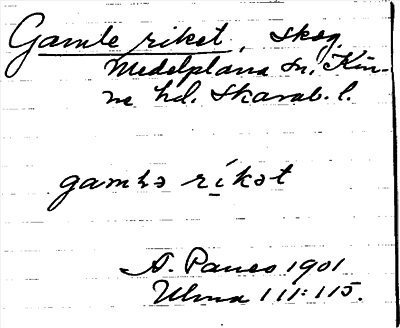 Gamle riket, skog.
Medelplana sn, Kin-
ne hd. Skarab. l.
gamlə ríkət
A. Paues 1901
Ulma 111:115.